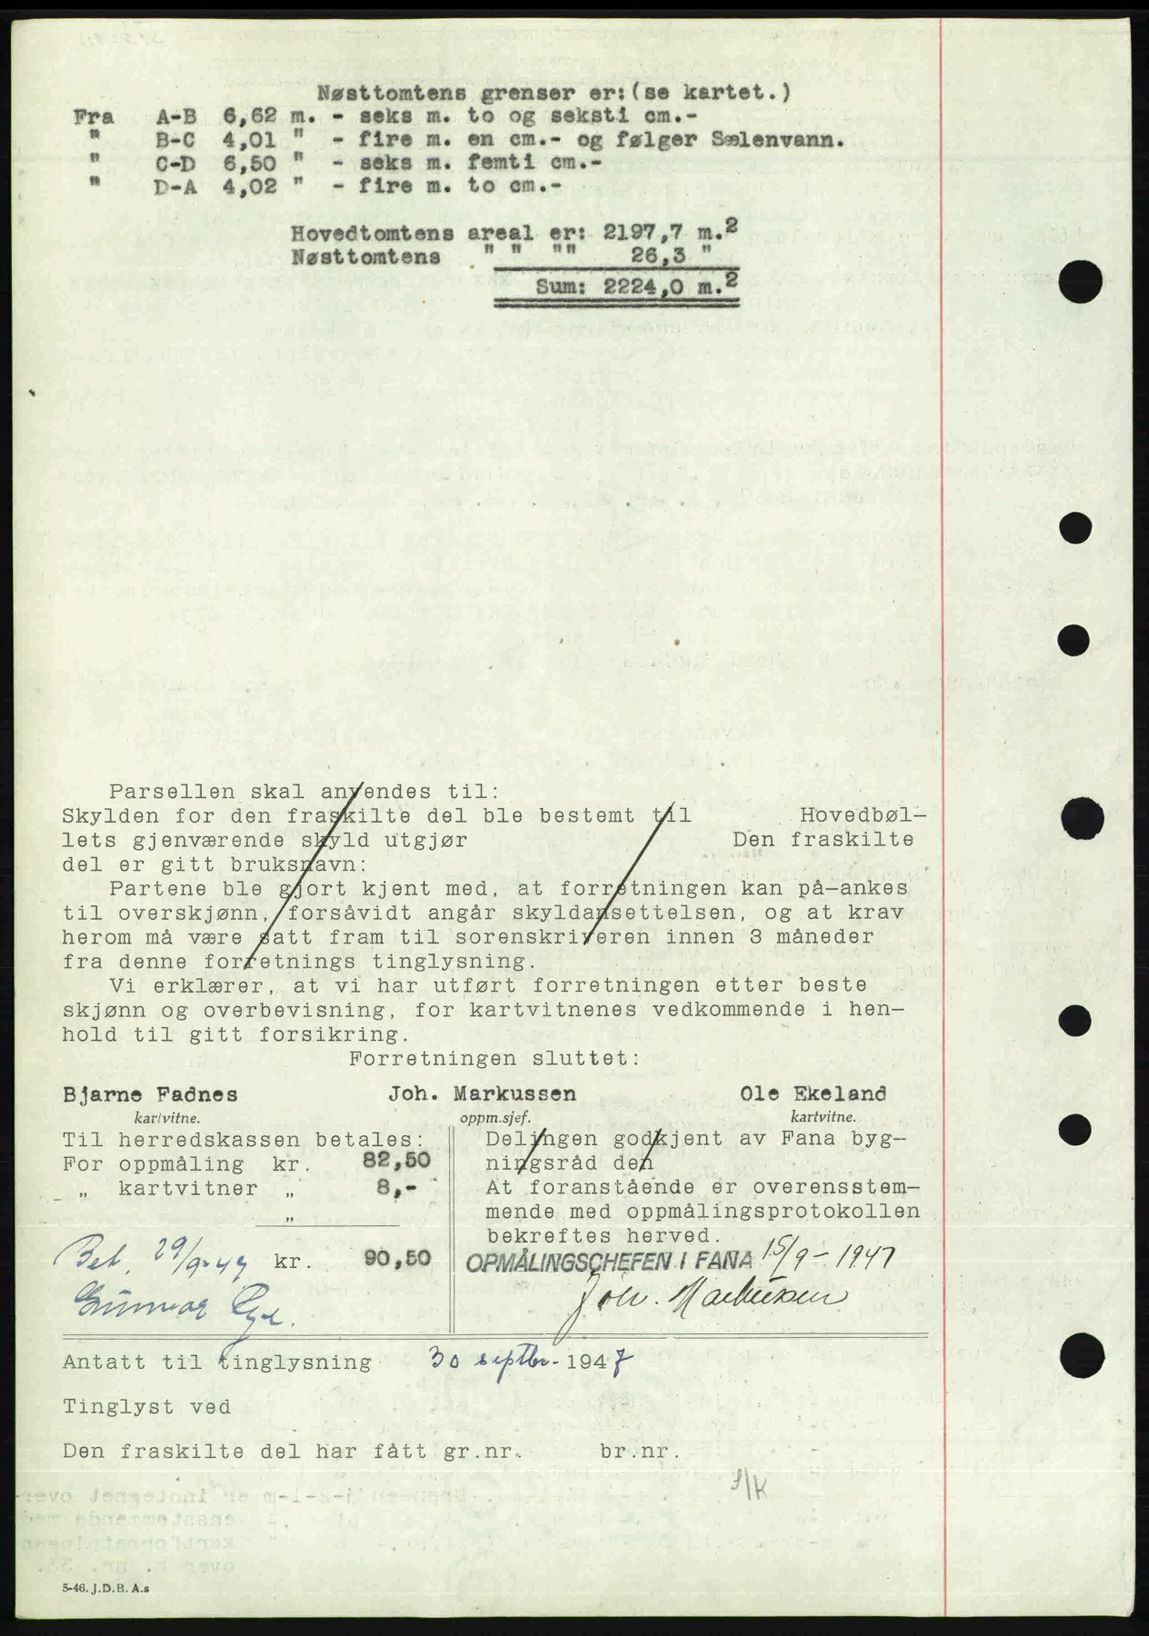 Nøsttomtens grenser er:(se kartet.)
Fra A-B 6,62 m. - seks m. to og seksti cm.-
" B-C 4,01 " - fire m. en cm.- og følger Sælenvann.
" C-D 6,50 " - seks m. femti cm.-
" D-A 4,02 " - fire m. to cm.-
Hovedtomtens areal er: 2197,7 m.2
Nøsttomtens " " "" 26,3 "
Sum: 2224,0 m.2
Parsellen skal anvendes til:
Skylden for den fraskilte del ble bestemt til Hovedbøl-
lets gjenværende skyld utgjør Den fraskilte
del er gitt bruksnavn:
Partene ble gjort kjent med, at forretningen kan på-ankes
til overskjønn, forsåvidt angår skyldansettelsen, og at krav
herom må være satt fram til sorenskriveren innen 3 måneder
fra denne forretnings tinglysning.
Vi erklærer, at vi har utført forretningen etter beste
skjønn og overbevisning, for kartvitnenes vedkommende i hen-
hold til gitt forsikring.
Forretningen sluttet:
Bjarne Fadnes Joh. Markussen Ole Ekeland
kartvitne. oppm.sjef. kartvitne.
Til herredskassen betales:
For oppmåling kr. 82,50
" kartvitner " 8,-
"
Bet. 29/9-47 kr. 90,50
Gunnar
Delingen godkjent av Fana byg-
ningsråd den
At foranstående er overensstem-
mende med oppmålingsprotokollen
bekreftes herved.
OPMÅLINGSCHEFEN I FANA 15/9-1947
Joh. Markussen
Antatt til tinglysning 30 septbr. 1947
Tinglyst ved
Den fraskilte del har fått gr.nr. br.nr.
5-46. J.D.B. A.s